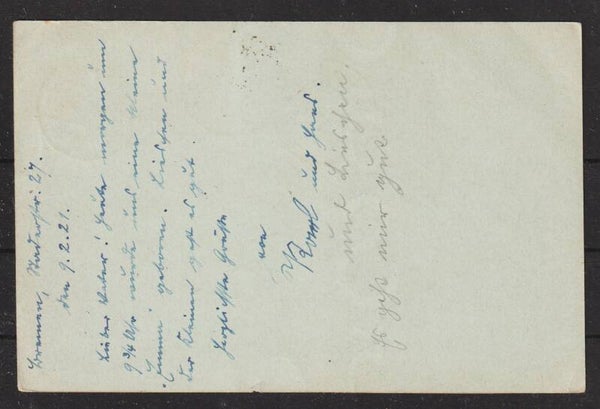 Bremen, Staderstr. 27.
den 9.2.21.
Lieber Peter! Heute morgen um
9 3/4 Uhr wurde uns eine kleine
"Emmi" geboren. Lieschen und
der Kleinen geht es gut.
Herzlichste Grüße
von
und Hans.
und Lieschen.
Es geht mir gut.